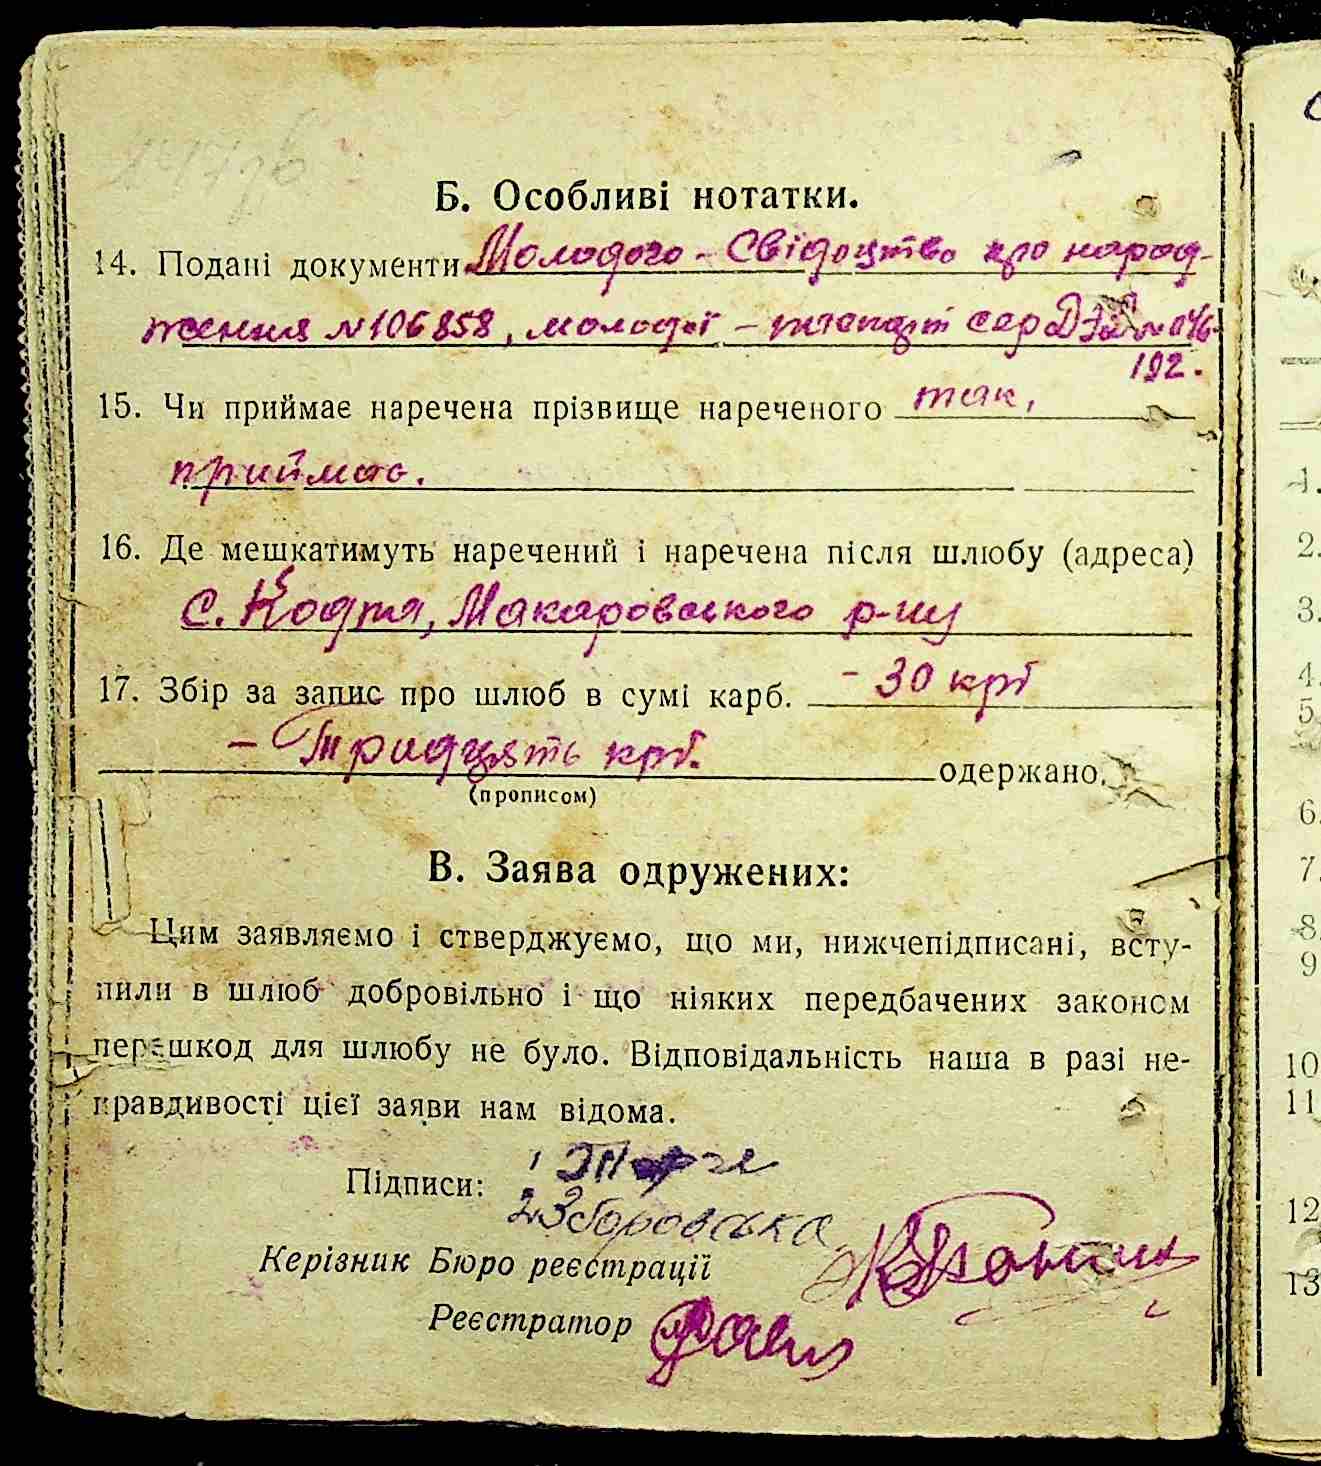 Б. Особливі нотатки.
14. Подані документи Молодого - Свідоцтво про народ-
ження №106858, молодої - паспорт сер №046
192.
15. Чи приймає наречена прізвище нареченого так,
приймає.
16. Де мешкатимуть наречений і наречена після шлюбу (адреса)
с. Кодра, Макаровського р-ну
17. Збір за запис про шлюб в сумі карб. - 30 крб
- Тридцять крб. одержано.
(прописом)
В. Заява одружених:
Цим заявляємо і стверджуємо, що ми, нижчепідписані, всту-
пили в шлюб добровільно і що ніяких передбачених законом
перешкод для шлюбу не було. Відповідальність наша в разі не-
правдивості цієї заяви нам відома.
Підписи: 1
2 Зборовська
Керізник Бюро реєстрації
Реєстратор
6.
7.
8.
9
10
11
12
13